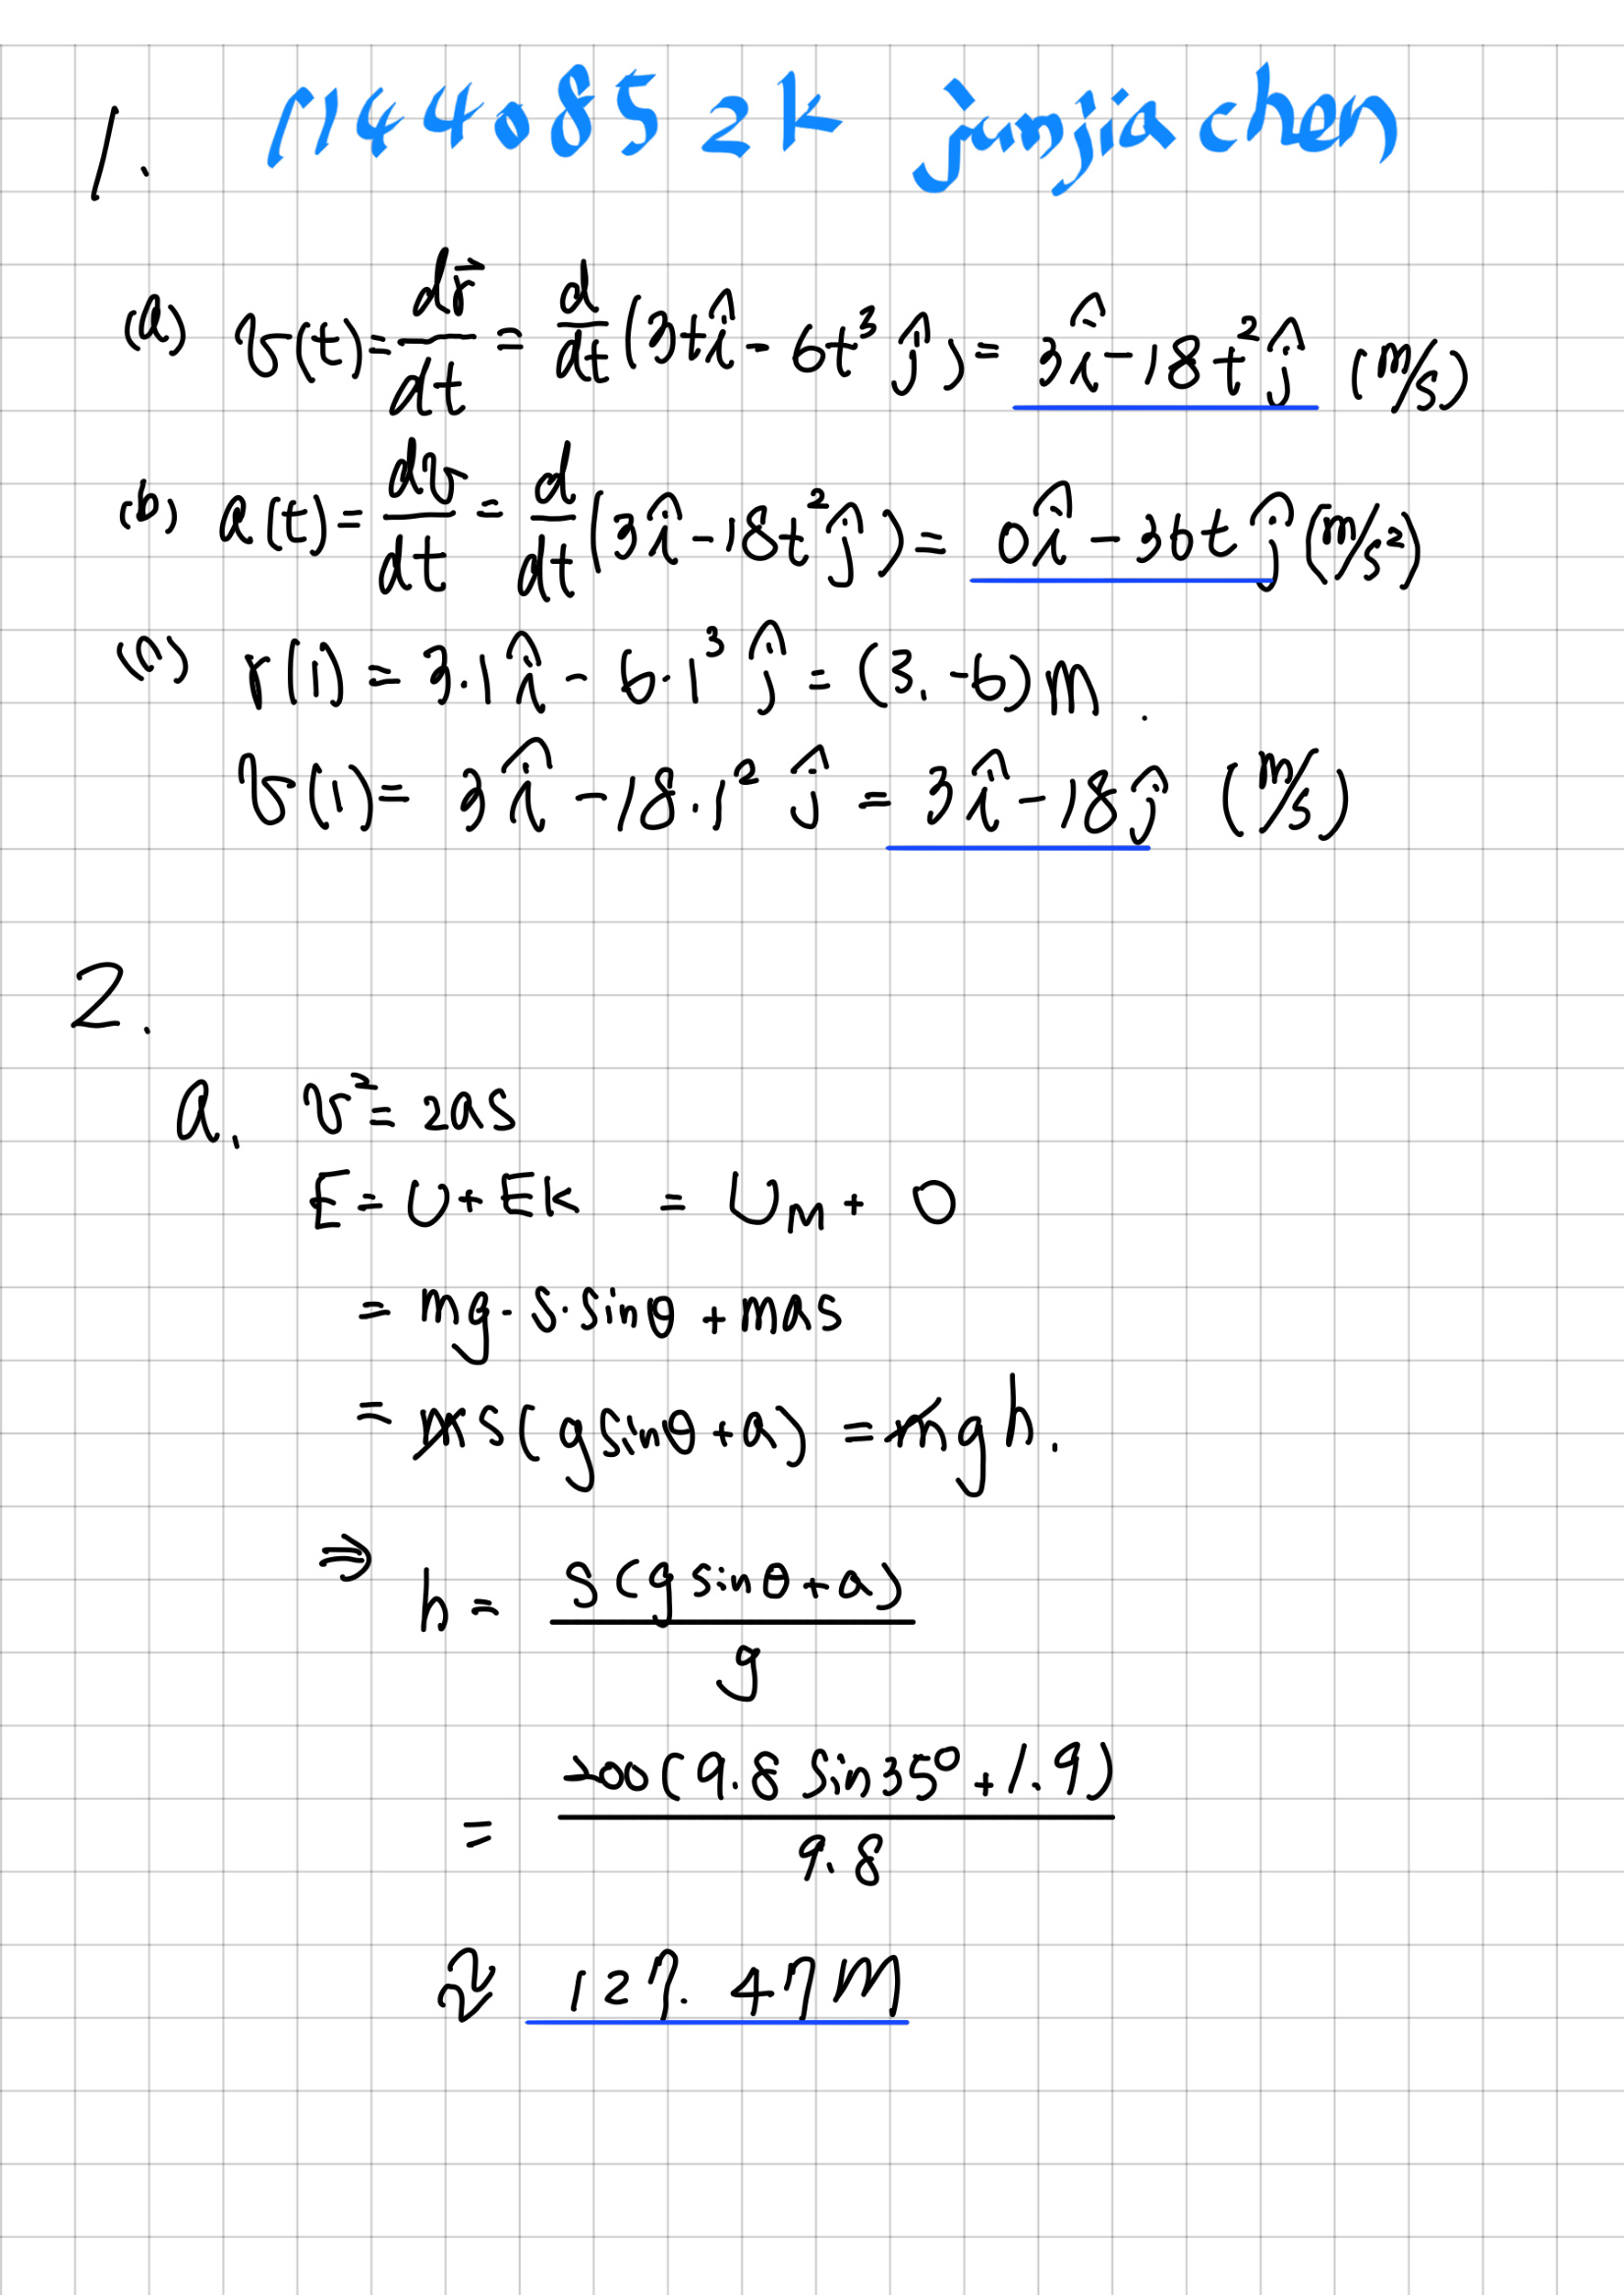 1. 1144085 zk junjia chen
(a) v(t)=dr⃗/dt = d/dt(3tî - 6t³ĵ) = 3î-18t²ĵ (m/s)
(b) a(t)=dv/dt = d/dt(3î-18t²ĵ) = 0î-36tĵ (m/s²)
(c) r(1)=3·1î - 6·1³ĵ = (3.-6)m.
v(1)= 3î-18·1²ĵ = 3î-18ĵ (m/s)
2.
a. v²=2as
E=U+Ek = UM+0
= mg·s·sinθ+mas
= ms(gsinθ+a) = mgh.
⇒ h= s(gsinθ+a)/g
= 200(9.8 sin35°+1.9)/9.8
≈ 127.47m